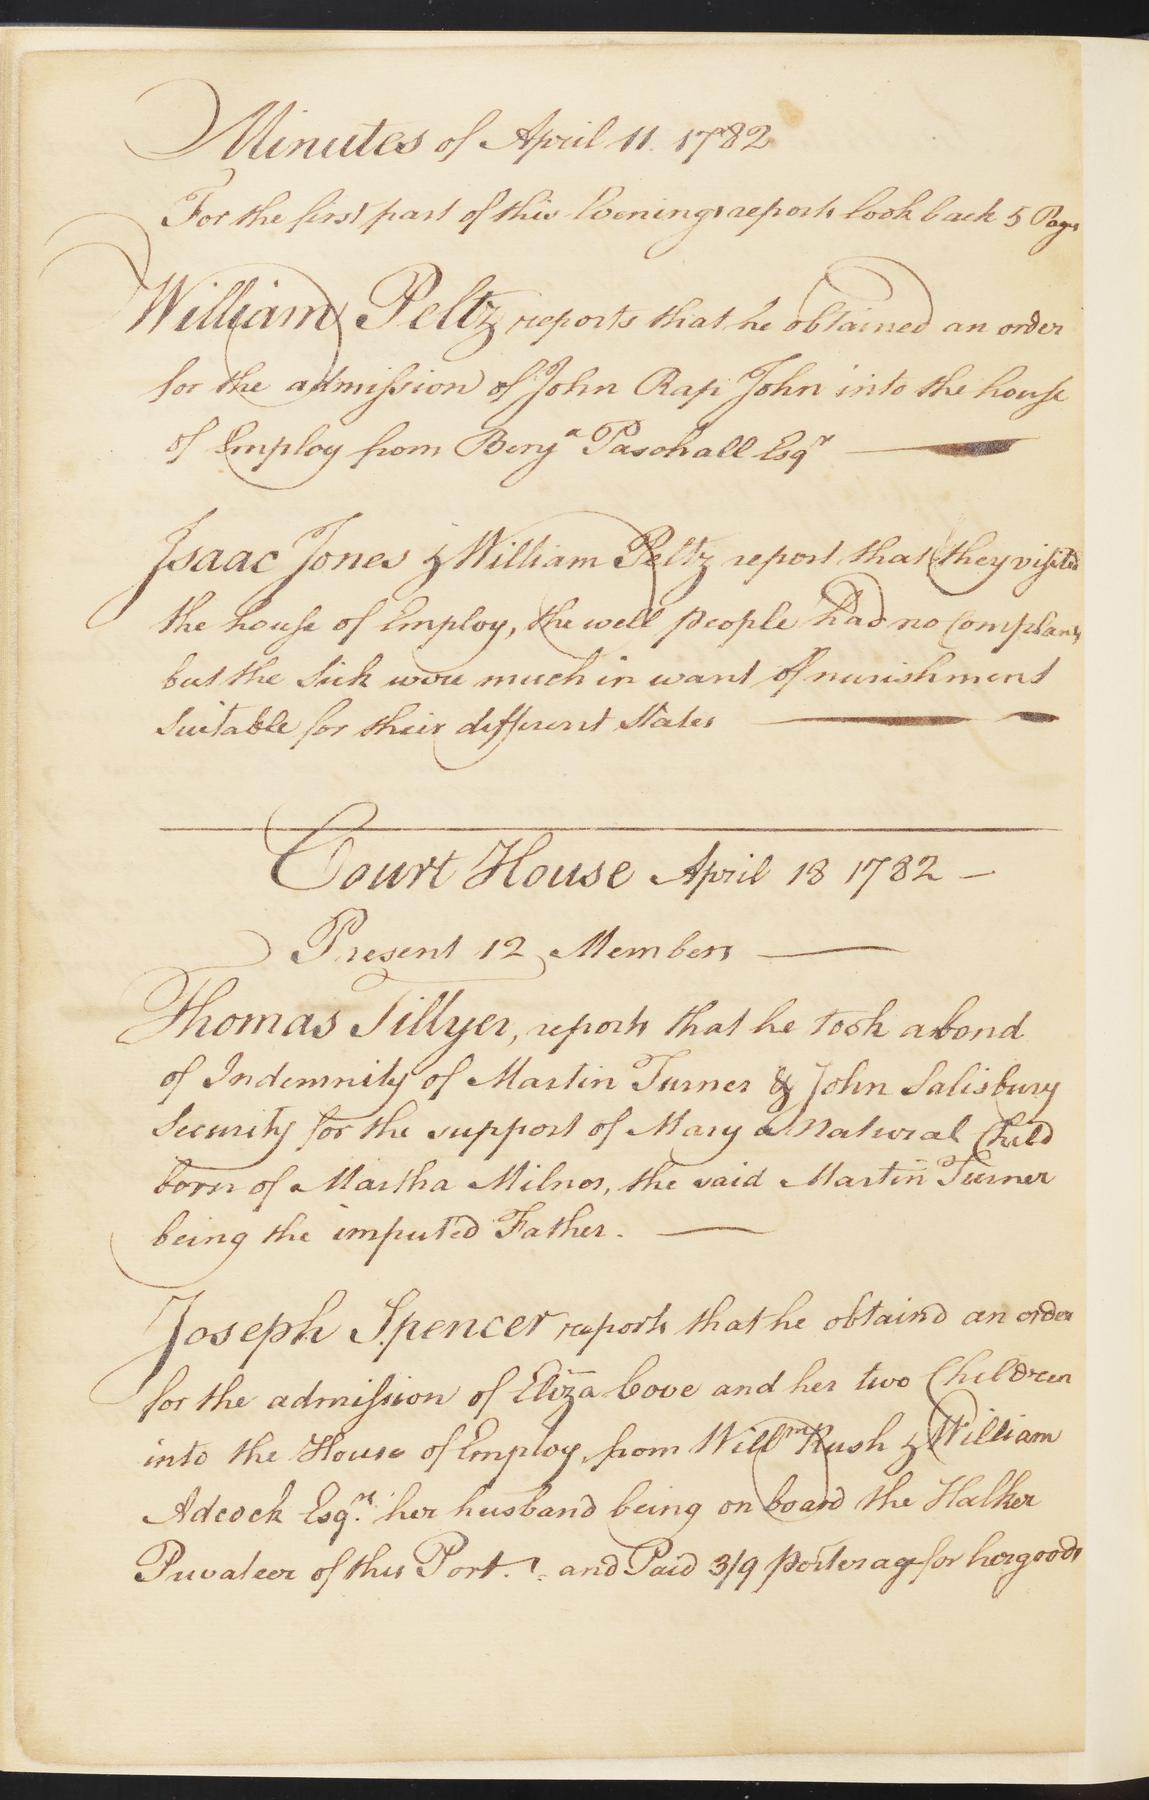 Minutes of April 11. 1782
For the first part of this Evenings reports look back 5 Pages
William Peltz reports that he obtained an order
for the admission of John Rap John into the house
of Employ from Benjª Paschall Esqr
Isaac Jones & William Peltz report that they visited
the house of Employ, the well people had no Complants
but the Sick were much in want of nurishment
Suitable for their different States
Court House April 18 1782 —
Present 12 Members
Thomas Tillyer, reports that he took a bond
of Indemnity of Martin Turner & John Salisbury
Security for the support of Mary a Natural Child
born of Martha Milnor, the said Martin Turner
being the imputed Father.
Joseph Spencer reports that he obtaind an order
for the admission of Eliza Cove and her two Children
into the House of Employ, from Willm Rush & William
Adcock Esqrs her husband being on board the Halker
Privateer of this Port. and Paid 3/9 Porterag for her goods